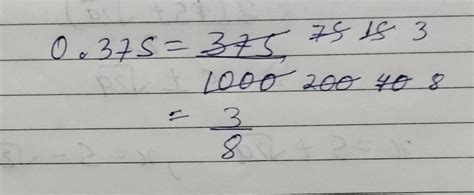 0.375 = 375 75 15 3
1000 200 40 8
= 3
8